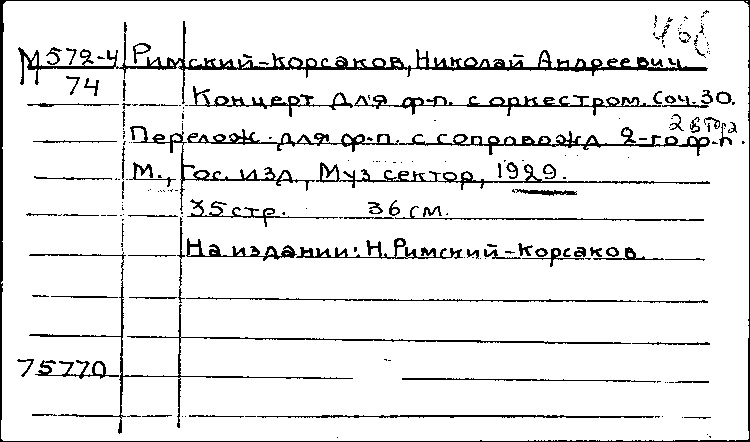 468
М 572-4 Римский-Корсаков, Николай Андреевич
74
Концерт для ф-п. с оркестром. Соч. 30.
Перелож. для ф-п. с сопровожд 2-го ф-п.
М., Гос. изд., Муз сектор, 1929.
35 стр. 36 см.
На издании: Н. Римский-Корсаков.
75770